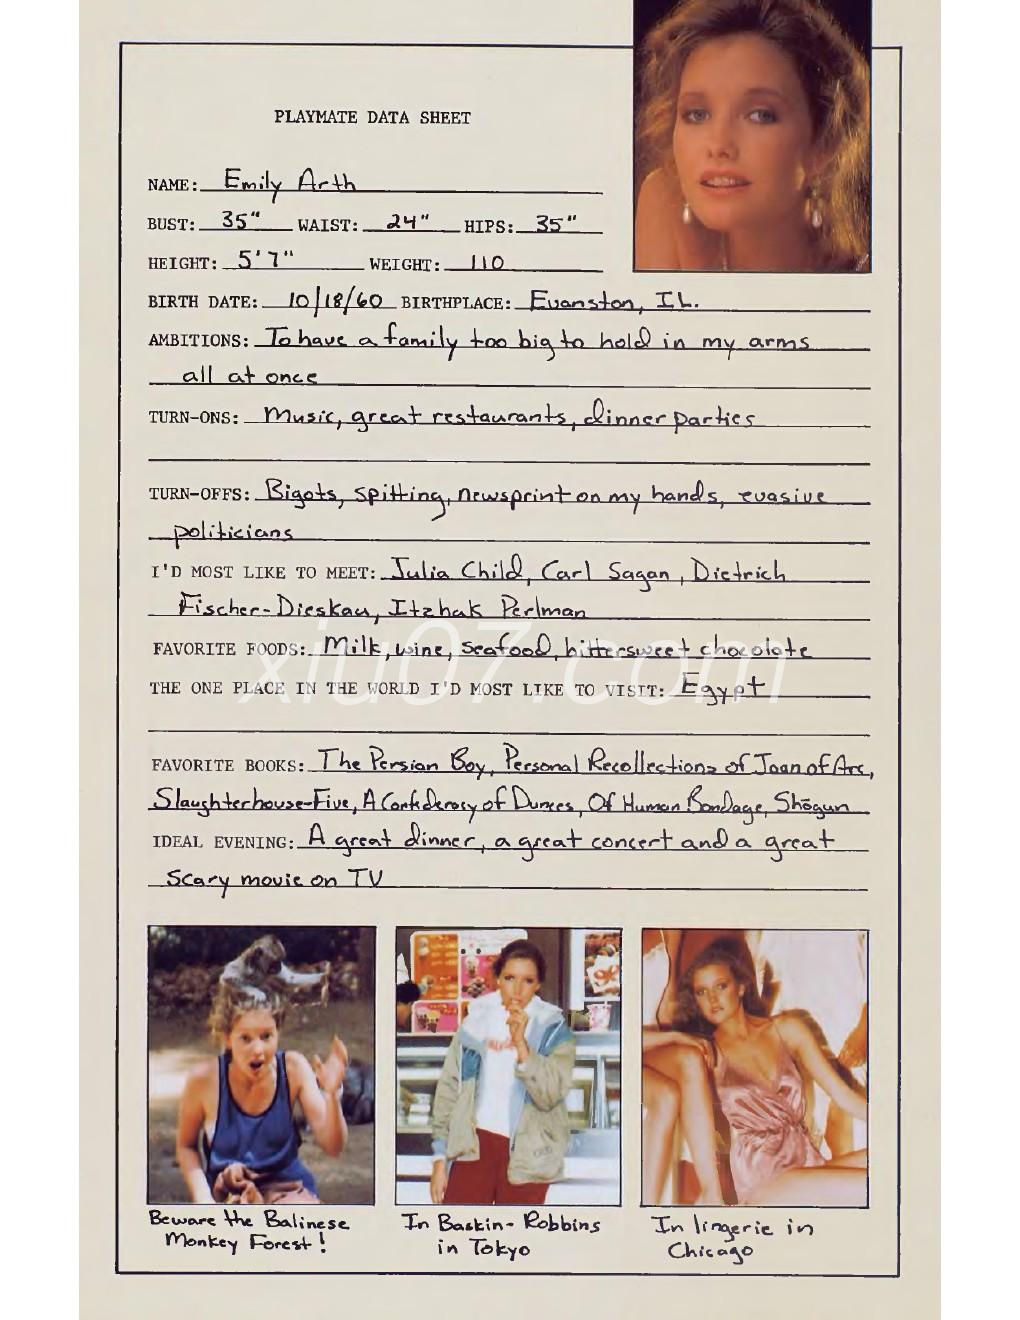 PLAYMATE DATA SHEET
NAME: Emily Arth
BUST: 35" WAIST: 24" HIPS: 35"
HEIGHT: 5'7" WEIGHT: 110
BIRTH DATE: 10/18/60 BIRTHPLACE: Evanston, IL.
AMBITIONS: To have a family too big to hold in my arms
all at once
TURN-ONS: Music, great restaurants, dinner parties
TURN-OFFS: Bigots, spitting, newsprint on my hands, evasive
politicians
I'D MOST LIKE TO MEET: Julia Child, Carl Sagan, Dietrich
Fischer-Dieskau, Itzhak Perlman
FAVORITE FOODS: Milk, wine, seafood, bittersweet chocolate
xiu07.com
THE ONE PLACE IN THE WORLD I'D MOST LIKE TO VISIT: Egypt
FAVORITE BOOKS: The Persian Boy, Personal Recollections of Joan of Arc,
Slaughterhouse-Five, A Confederacy of Dunces, Of Human Bondage, Shōgun
IDEAL EVENING: A great dinner, a great concert and a great
scary movie on TV
Beware the Balinese
Monkey Forest!
In Baskin-Robbins
in Tokyo
In lingerie in
Chicago